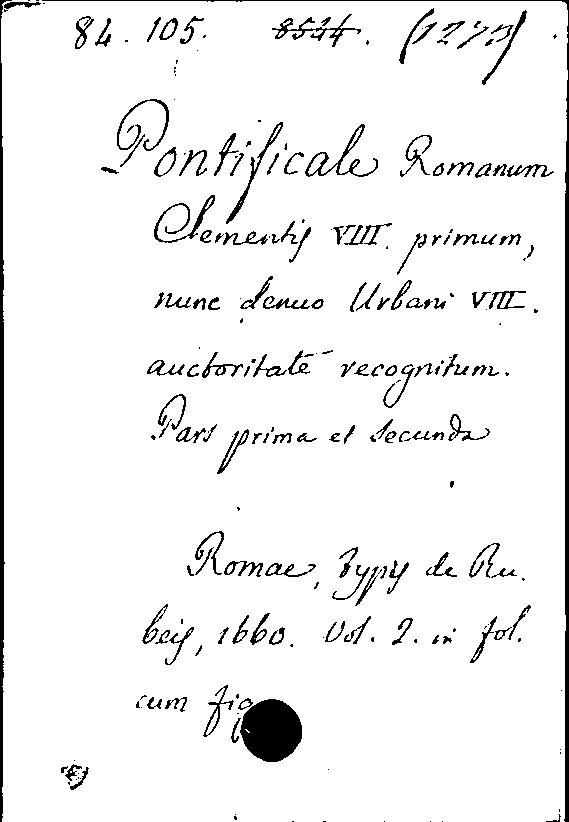 84. 105. 8524. (1273)
Pontificale Romanum
Clementis VIII. primum,
nunc denuo Urbani VIII.
auctoritate recognitum.
Pars prima et secunda
Romae, typis de Ru-
beis, 1660. Vol. 2. in fol.
cum fig